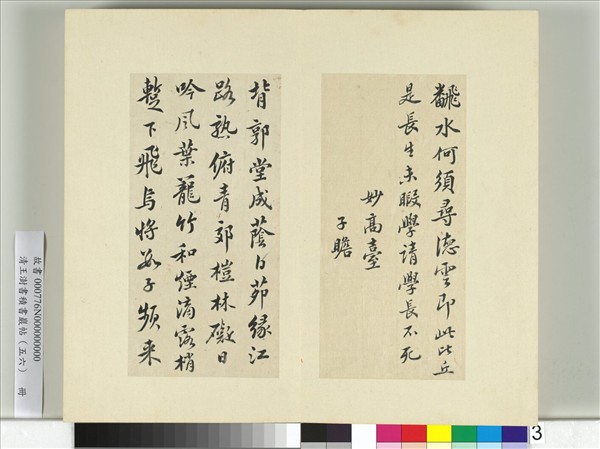 飜水何須尋德雲即此比丘
是長生未暇學請學長不死
妙高臺
子瞻
背郭堂成蔭白茆緣江
路熟俯青郊榿林礙日
吟風葉籠竹和煙滴露梢
蹔下飛烏將數子頻來
故書 000776N000000000
清王澍書積書巖帖（五六） 冊
3